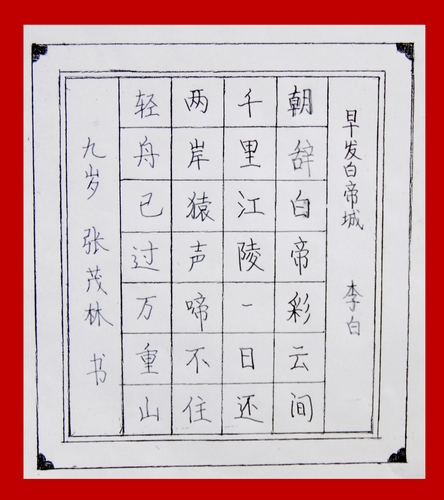 早发白帝城 李白
朝辞白帝彩云间
千里江陵一日还
两岸猿声啼不住
轻舟已过万重山
九岁 张茂林 书